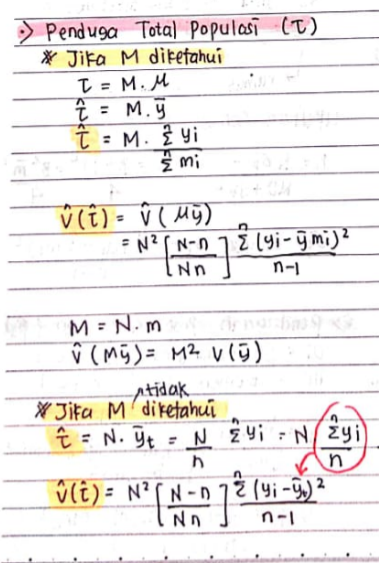 •> Penduga Total Populasi (τ)
※ Jika M diketahui
τ = M. μ
τ̂ = M. ȳ
τ̂ = M. Σⁿ yi / Σⁿ mi
V̂(τ̂) = V̂ (Mȳ)
= N² [N-n / Nn] Σⁿ (yi - ȳ mi)² / n-1
M = N. m
V̂ (Mȳ) = M² V(ȳ)
tidak
※ Jika M diketahui
τ̂ = N. ȳt = N/n Σⁿ yi = N Σⁿ yi / n
V̂(τ̂) = N² [N-n / Nn] Σⁿ (yi - ȳt)² / n-1